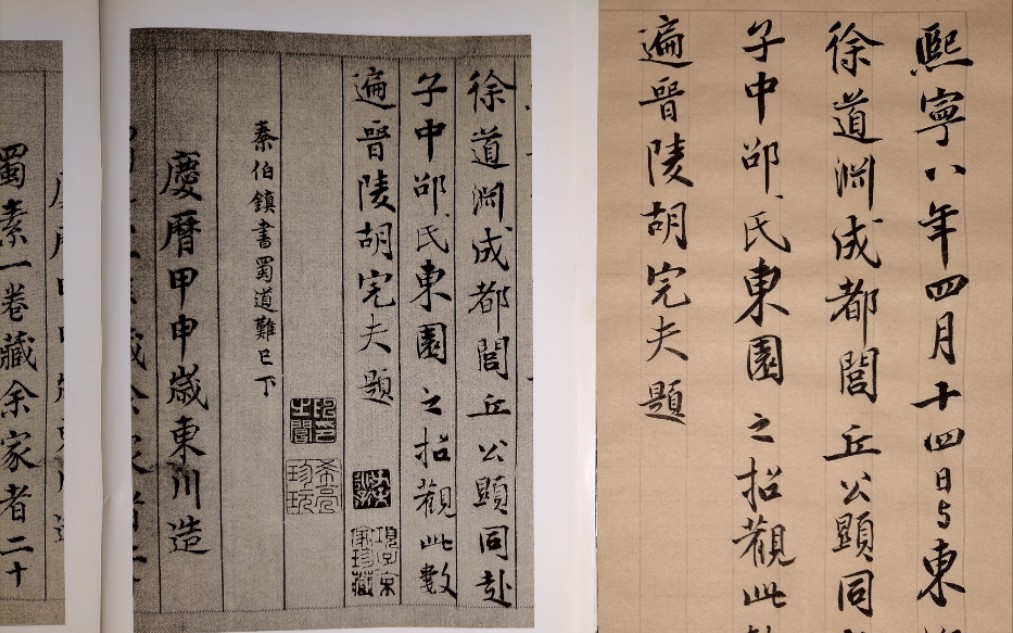 熙寧八年四月十四日与東
徐道淵成都閭丘公顯同
子中邵氏東園之招觀此
遍晉陵胡完夫題
徐道淵成都閭丘公顯同赴
子中邵氏東園之招觀此數
遍晉陵胡完夫題
秦伯鎮書蜀道難已下
慶曆甲申歲東川造
蜀素一卷藏余家者二十